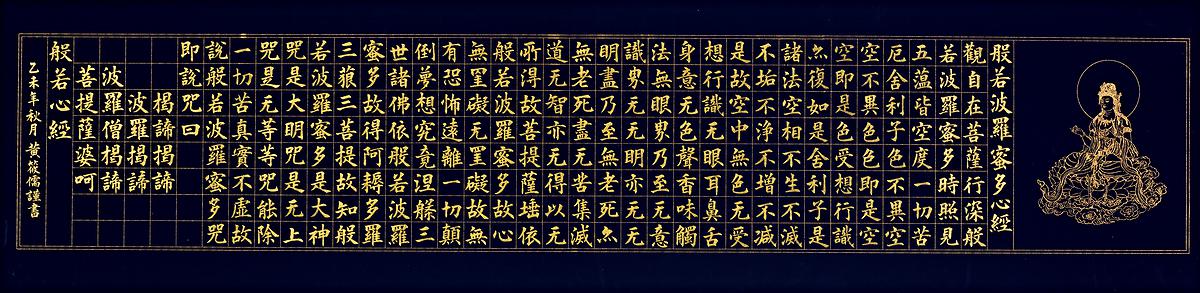 般若波羅蜜多心經
觀自在菩薩行深般
若波羅蜜多時照見
五蘊皆空度一切苦
厄舍利子色不異空
空不異色色即是空
空即是色受想行識
亦復如是舍利子是
諸法空相不生不滅
不垢不淨不增不減
是故空中無色无受
想行識无眼耳鼻舌
身意无色聲香味觸
法無眼界乃至无意
識界无無明亦无无
明盡乃至無老死亦
無老死盡无苦集滅
道无智亦无得以无
所得故菩提薩埵依
般若波羅蜜多故心
無罣礙无罣礙故無
有恐怖遠離一切顛
倒夢想究竟涅槃三
世諸佛依般若波羅
蜜多故得阿耨多羅
三藐三菩提故知般
若波羅蜜多是大神
咒是大明咒是无上
咒是无等等咒能除
一切苦真實不虛故
說般若波羅蜜多咒
即說咒曰
揭諦揭諦
波羅揭諦
波羅僧揭諦
菩提薩婆呵
般若心經
乙未年秋月 黃筱儒謹書